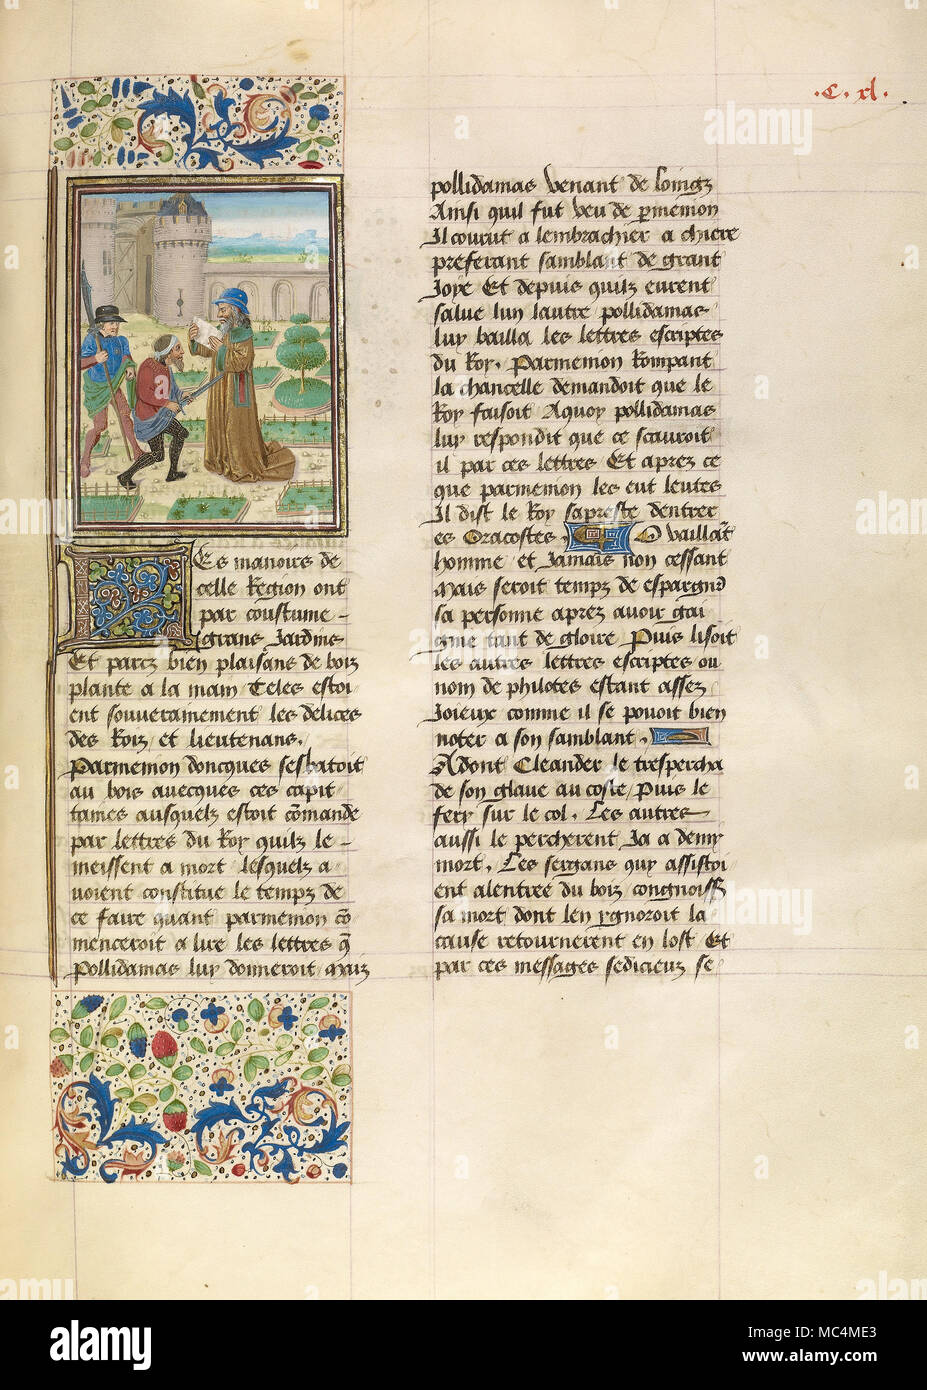 .C. xl.
Les manoirs de
celle Region ont
par coustume
grans Jardins
Et parcz bien plaisans de boiz
plante a la main Teles estoi
ent souverainement les delices
des Roiz et lieutenans.
Parmenion doncques sesbatoit
au bois avecques ces capit
taines ausquelz estoit cōmande
par lettres du Roy quilz le
meissent a mort lesquelz a
voient constitue le tempz de
ce faire quant parmenion cō
menceroit a lire les lettres q̄
Pollidamas luy donneroit Maiz
pollidamas venant de loingz
Ainsi quil fut veu de pmenion
Il courut a lembrachier a chiere
preferant samblant de grant
Joye Et depuis quilz eurent
salue lun lautre pollidamas
luy bailla les lettres escriptes
du Roy. Parmenion Rompant
la chancelle demandoit que le
Roy faisoit Aquoy pollidamas
luy respondit que ce scauroit
il par ces lettres Et aprez ce
que parmenion les eut leutes
Il dist le Roy sapreste dentrer
es Oracostes. O vaillāt
homme et Jamais non cessant
Mais seroit tempz de espargnier
sa personne aprez avoir gai
gnie tant de gloire Puis lisoit
les autres lettres escriptes ou
nom de philotes estant assez
Joieux comme il se povoit bien
noter a son samblant.
Adont Cleander le trespercha
de son glave au coste Puis le
fery sur le col. Les autres
aussi le percherent Ja a demy
mort. Les sergans quy assistoi
ent alentree du boiz congnoiss
sa mort dont len ygnoroit la
cause retournerent en lost Et
par ces messages sedicieux se
alamy
alamy
Image ID: MC4ME3
www.alamy.com